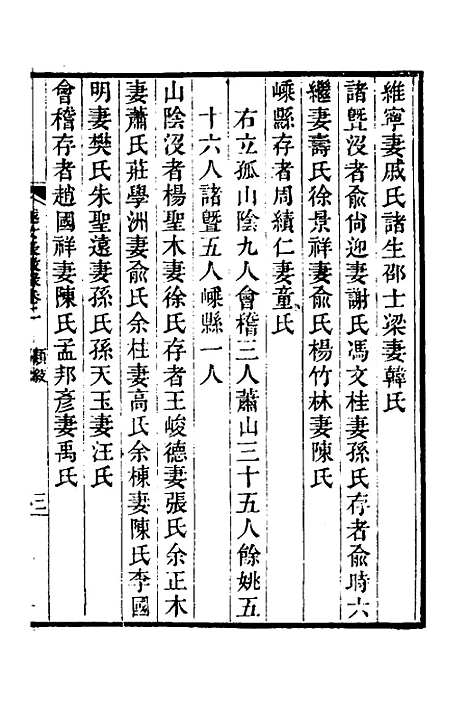 維寧妻戚氏諸生邵士梁妻韓氏
諸暨沒者俞尙迎妻謝氏馮文桂妻孫氏存者俞時六
繼妻壽氏徐景祥妻俞氏楊竹林妻陳氏
嵊縣存者周績仁妻童氏
右立孤山陰九人會稽三人蕭山三十五人餘姚五
十六人諸暨五人嵊縣一人
山陰沒者楊聖木妻徐氏存者王峻德妻張氏余正木
妻蕭氏莊學洲妻俞氏余柱妻高氏余棟妻陳氏李國
明妻樊氏朱聖遠妻孫氏孫天玉妻汪氏
會稽存者趙國祥妻陳氏孟邦彥妻禹氏